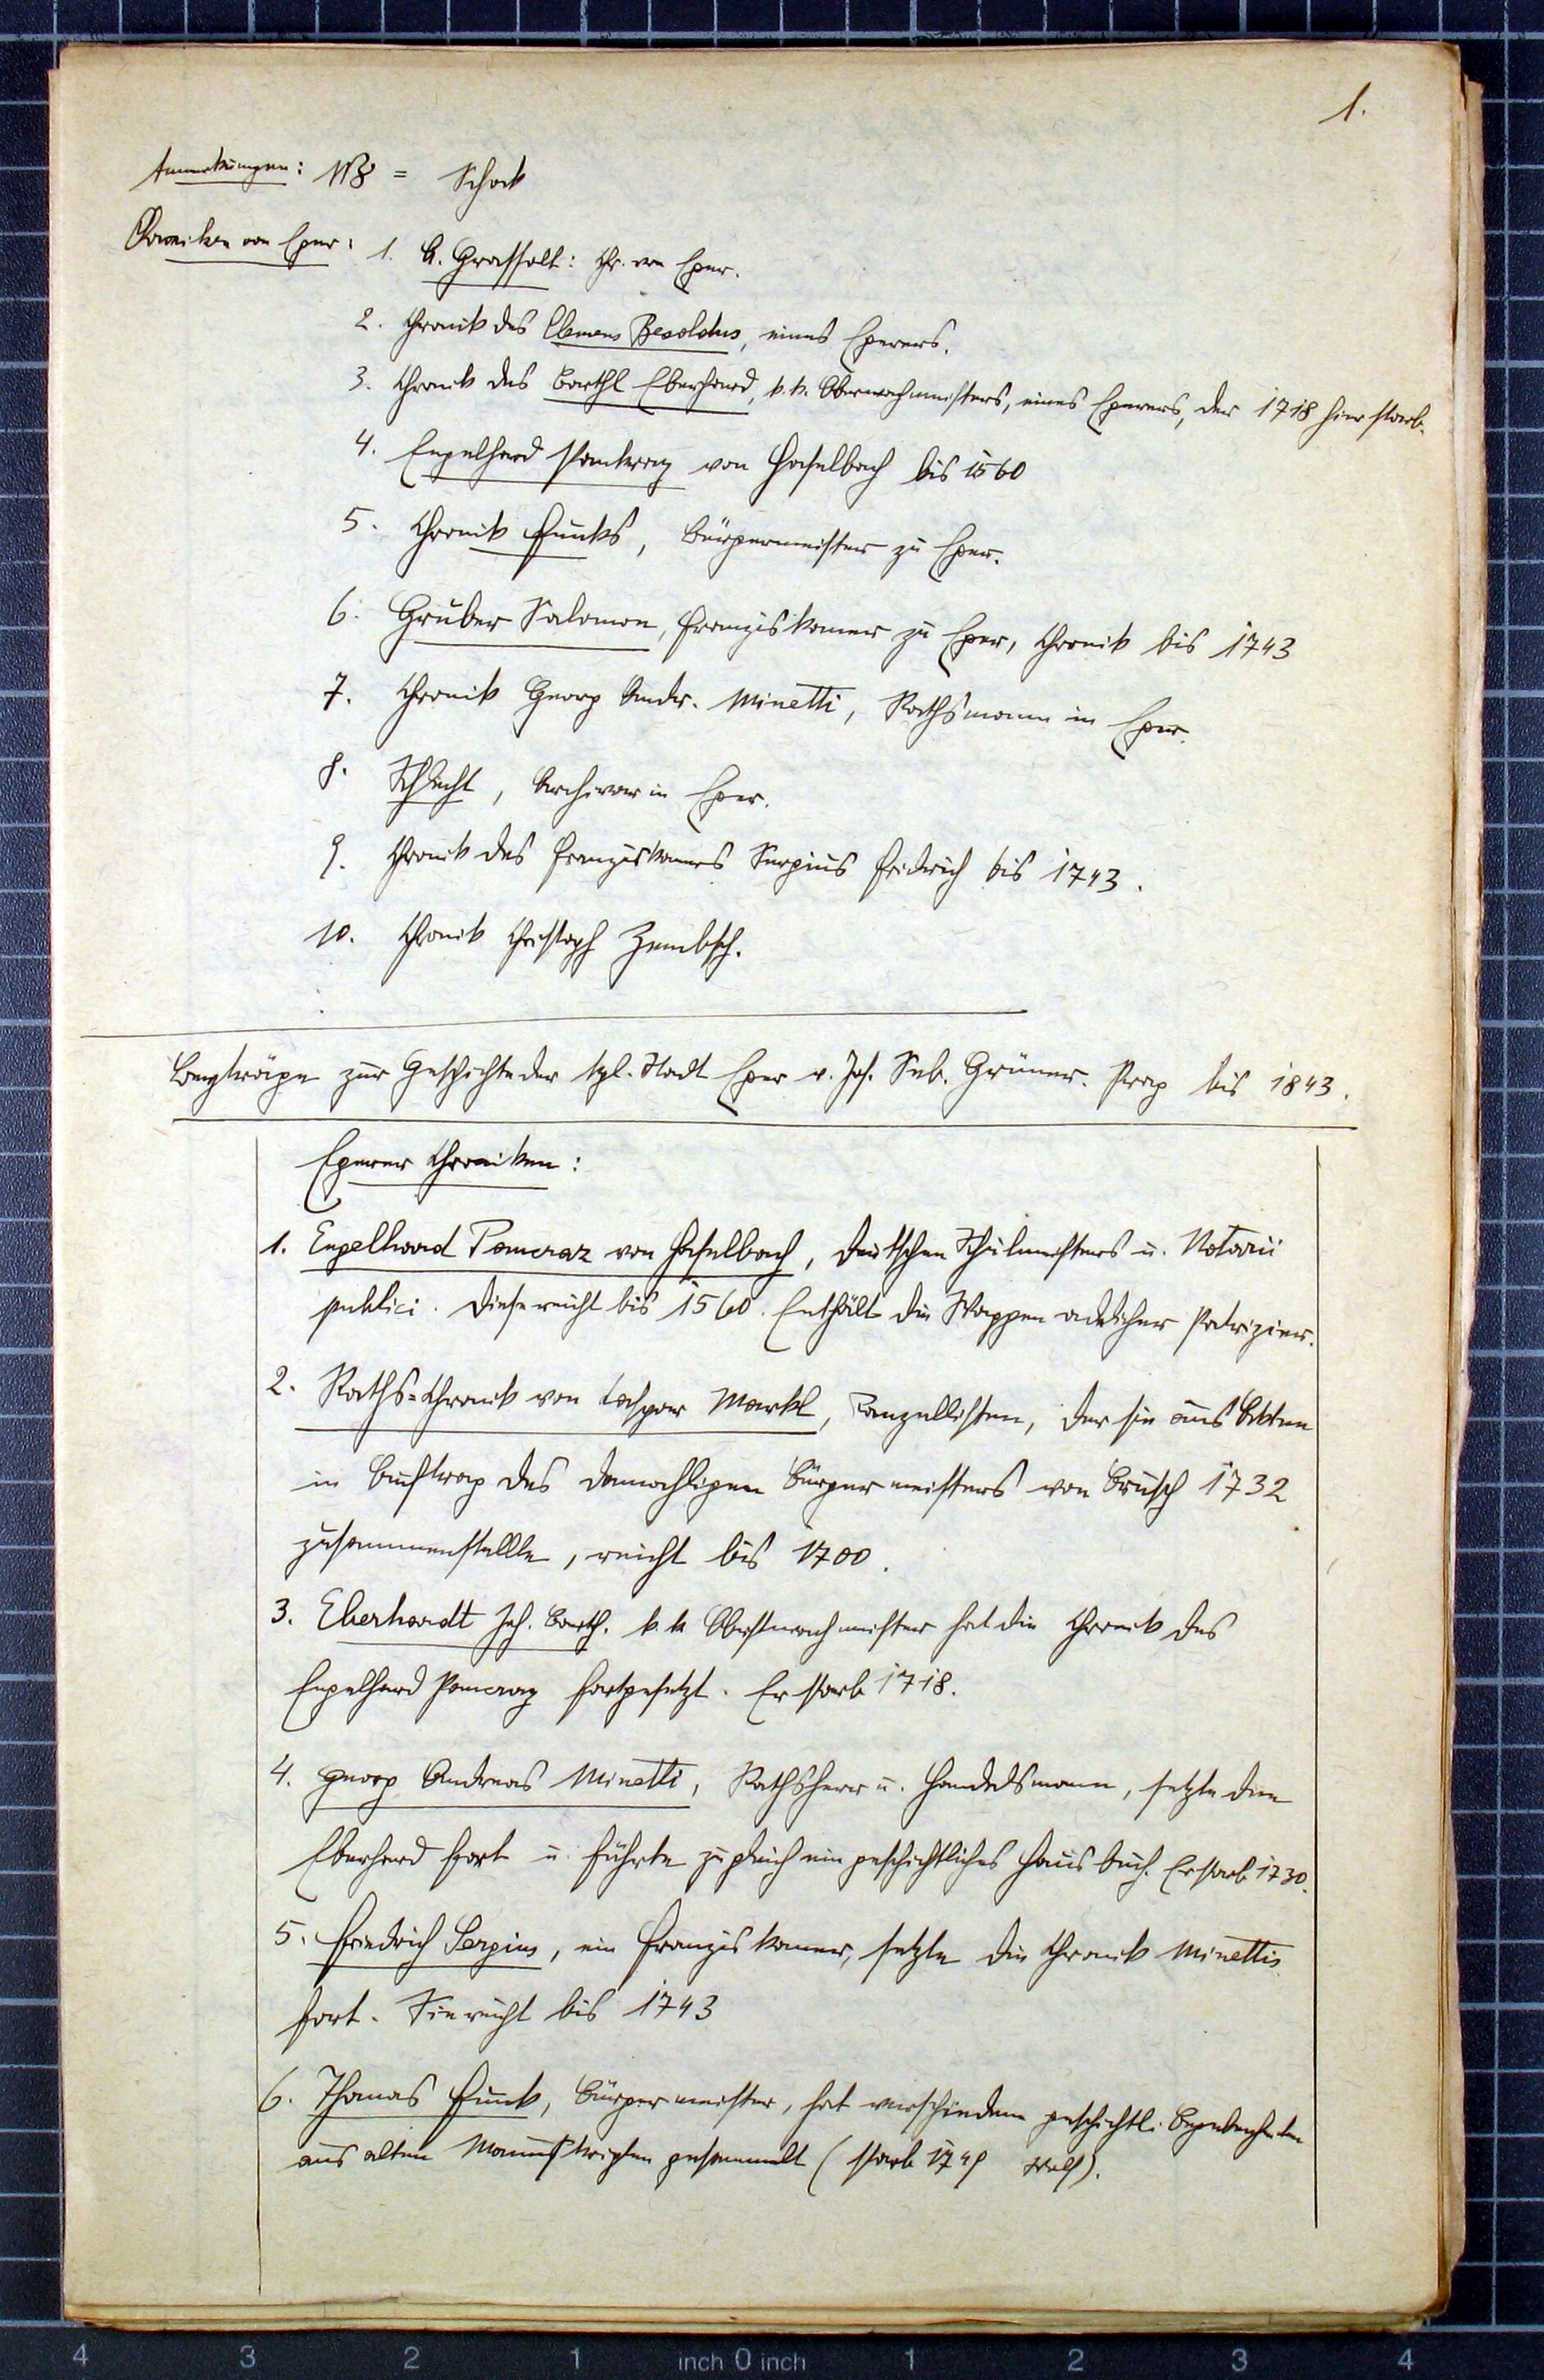 1.
Anmerkungen: = Schock
Chroniken von Eger: 1. A. Grassolt: Chr. von Eger.
2. Chronik des Clemens Besoldus, eines Egerers.
3. Chronik des Barthl Eberhard, k.k. Oberwachmeisters, eines Egerers, der 1718 hier starb.
4. Engelhard Pankraz von Haselbach bis 1560
5. Chronik Funks, Bürgermeister zu Eger.
6. Gruber Salomon, Franziskaner zu Eger, Chronik bis 1743
7. Chronik Georg Andr. Minetti, Rathsmann in Eger.
8. Schlecht, Archivar in Eger.
9. Chronik des Franziskaners Sergius Fridrich bis 1743.
10. Chronik Christoph Zembsch.
Beyträge zur Geschichte der kgl. Stadt Eger v. Jos. Seb. Grüner. Prag bis 1843.
Egerer Chroniken:
1. Engelhard Pancraz von Haselbach, deutschen Schulmeisters u. Notarii
publici. Diese reicht bis 1560. Enthält die Wappen adelicher Patrizier.
2. Raths-Chronik von Caspar Markl, Kanzellisten, der sie aus Akten
in Auftrag des damahligen Bürgermeisters von Brusch 1732
zusammenstellte, reicht bis 1700.
3. Eberhardt Joh. Barth. k.k Obristwachmeister hat die Chronik des
Engelhard Pancraz fortgesetzt. Er starb 1718.
4. Georg Andreas Minetti, Rathsherr u. Handelsmann, setzte den
Eberhard fort u. führte zugleich ein geschichtliches Hausbuch. Er starb 1730.
5. Friedrich Sergius, ein Franziskaner, setzte die Chronik Minettis
fort. Sie reicht bis 1743
6. Thomas Funk, Bürgermeister, hat verschiedene geschichtl. Begebenheiten
aus alten Manuskripten gesammelt (starb 1749